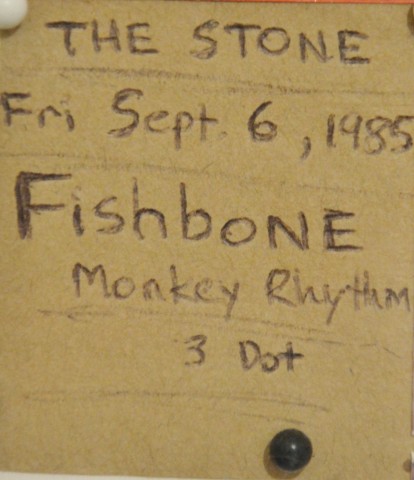 THE STONE
Fri Sept. 6, 1985
FishboNE
Monkey Rhythm
3 Dot